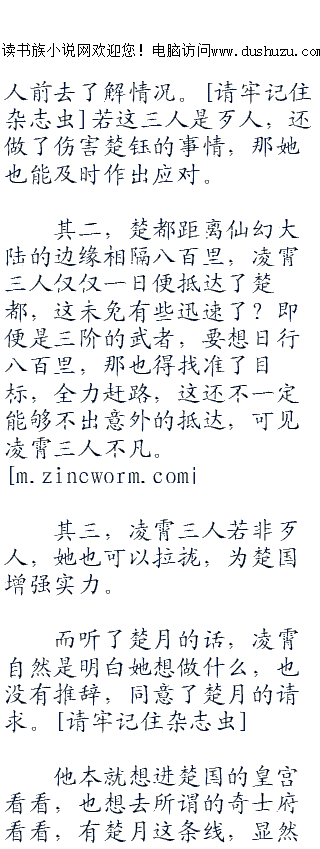 读书族小说网欢迎您！电脑访问www.dushuzu.com
人前去了解情况。[请牢记住
杂志虫]若这三人是歹人，还
做了伤害楚钰的事情，那她
也能及时作出应对。
其二，楚都距离仙幻大
陆的边缘相隔八百里，凌霄
三人仅仅一日便抵达了楚
都，这未免有些迅速了？即
便是三阶的武者，要想日行
八百里，那也得找准了目
标，全力赶路，这还不一定
能够不出意外的抵达，可见
凌霄三人不凡。
[m.zincworm.com]
其三，凌霄三人若非歹
人，她也可以拉拢，为楚国
增强实力。
而听了楚月的话，凌霄
自然是明白她想做什么，也
没有推辞，同意了楚月的请
求。[请牢记住杂志虫]
他本就想进楚国的皇宫
看看，也想去所谓的奇士府
看看，有楚月这条线，显然